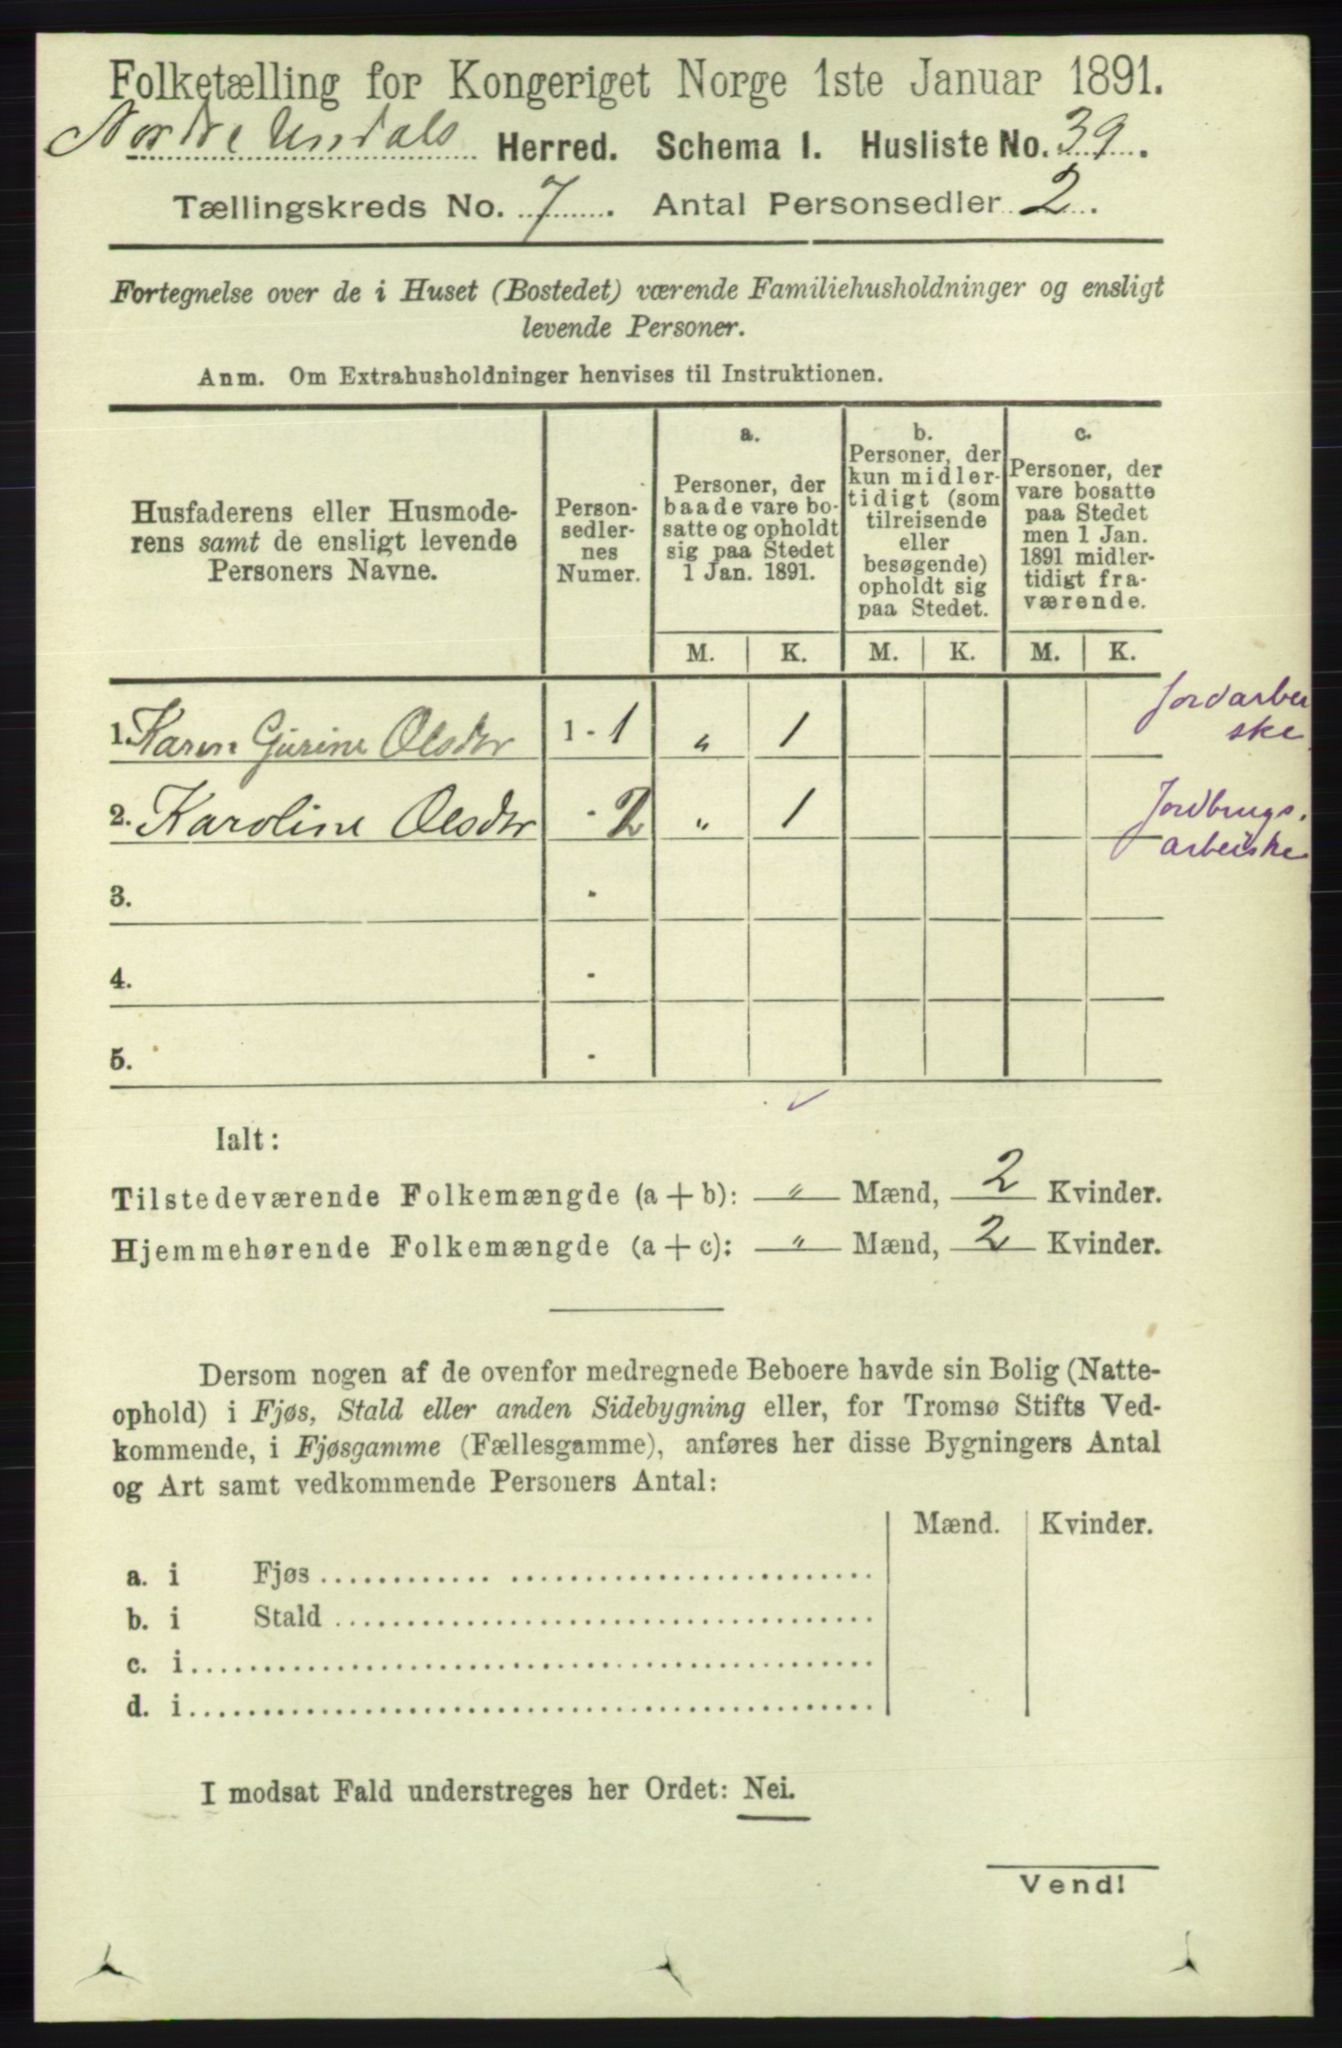 Folketælling for Kongeriget Norge 1ste Januar 1891.
Nordre Undals Herred. Schema I. Husliste No. 39.
Tællingskreds No. 7. Antal Personsedler 2.
Fortegnelse over de i Huset (Bostedet) værende Familiehusholdninger og ensligt
levende Personer.
Anm. Om Extrahusholdninger henvises til Instruktionen.
Husfaderens eller Husmode-
rens samt de ensligt levende
Personers Navne.
Person-
sedler-
nes
Numer.
a.
Personer, der
baade vare bo-
satte og opholdt
sig paa Stedet
1 Jan. 1891.
b.
Personer, der
kun midler-
tidigt (som
tilreisende
eller
besøgende)
opholdt sig
paa Stedet.
c.
Personer, der
vare bosatte
paa Stedet
men 1 Jan.
1891 midler-
tidigt fra-
værende.
M. K. M. K. M. K.
1. Karen Gurine Olsdtr 1 - 1 „ 1 Jordarbei
ske
2. Karoline Olsdtr - 2 „ 1 Jordbrugs.
arbeiske
3. -
4. -
5. -
Ialt:
Tilstedeværende Folkemængde (a + b): „ Mænd, 2 Kvinder.
Hjemmehørende Folkemængde (a + c): „ Mænd, 2 Kvinder.
Dersom nogen af de ovenfor medregnede Beboere havde sin Bolig (Natte-
ophold) i Fjøs, Stald eller anden Sidebygning eller, for Tromsø Stifts Ved-
kommende, i Fjøsgamme (Fællesgamme), anføres her disse Bygningers Antal
og Art samt vedkommende Personers Antal:
Mænd. Kvinder.
a. i Fjøs
b. i Stald
c. i
d. i
I modsat Fald understreges her Ordet: Nei.
Vend!